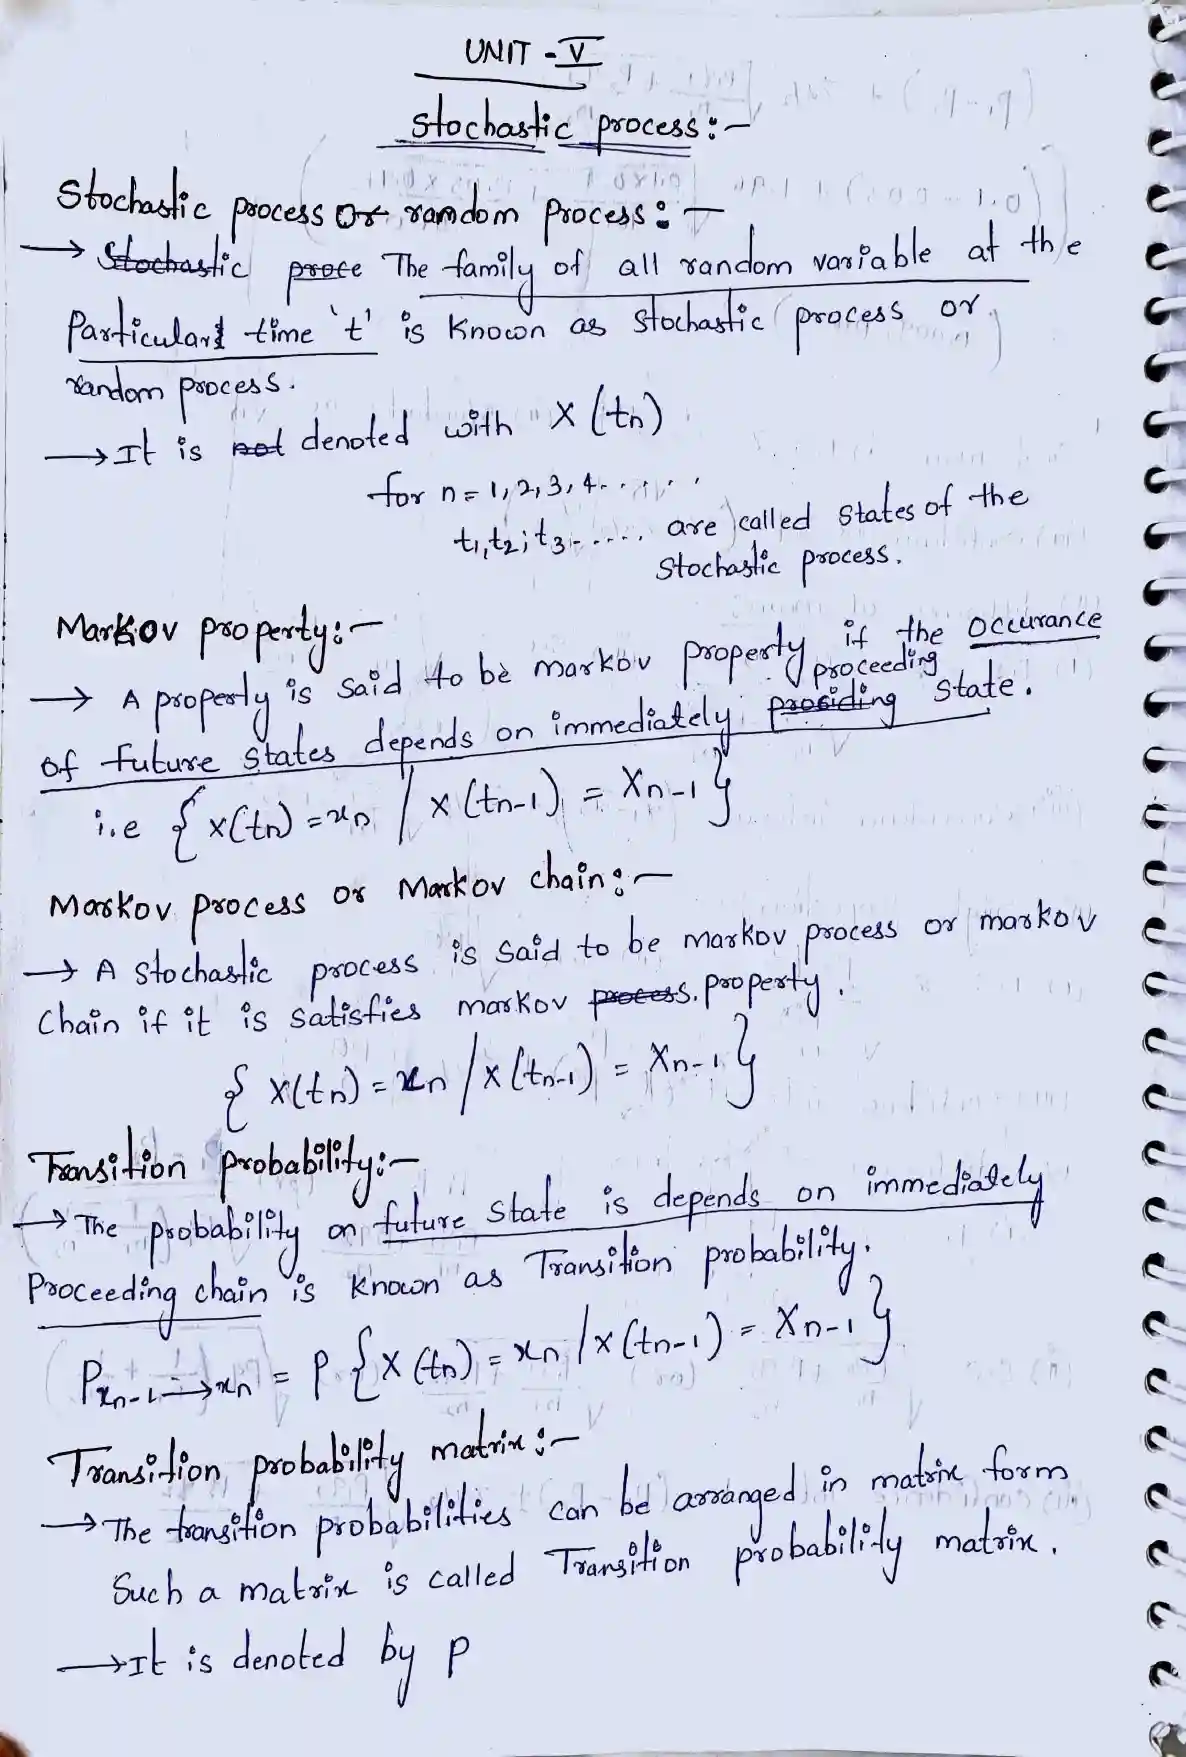 UNIT - V
Stochastic process:-
Stochastic process or random process:-
→ Stochastic proce The family of all random variable at the
Particulart time 't' is known as stochastic process or
random process.
→ It is not denoted with X (tn)
for n = 1, 2, 3, 4.......
t1, t2, t3...... are called states of the
stochastic process.
Markov property:-
→ A property is said to be markov property if the occurance
of future states depends on immediately prociding proceeding state.
i.e { x(tn) = xn / x (tn-1) = Xn-1 }
Markov process or Markov chain:-
→ A stochastic process is said to be markov process or markov
chain if it is satisfies markov process. property.
{ X(tn) = xn / x (tn-1) = Xn-1 }
Transition probability:-
→ The probability on future state is depends on immediately
Proceeding chain is known as Transition probability.
Pxn-1→xn = P { X (tn) = xn / x (tn-1) = Xn-1 }
Transition probability matrix:-
→ The transition probabilities can be arranged in matrix form
Such a matrix is called Transition probability matrix.
→ It is denoted by P